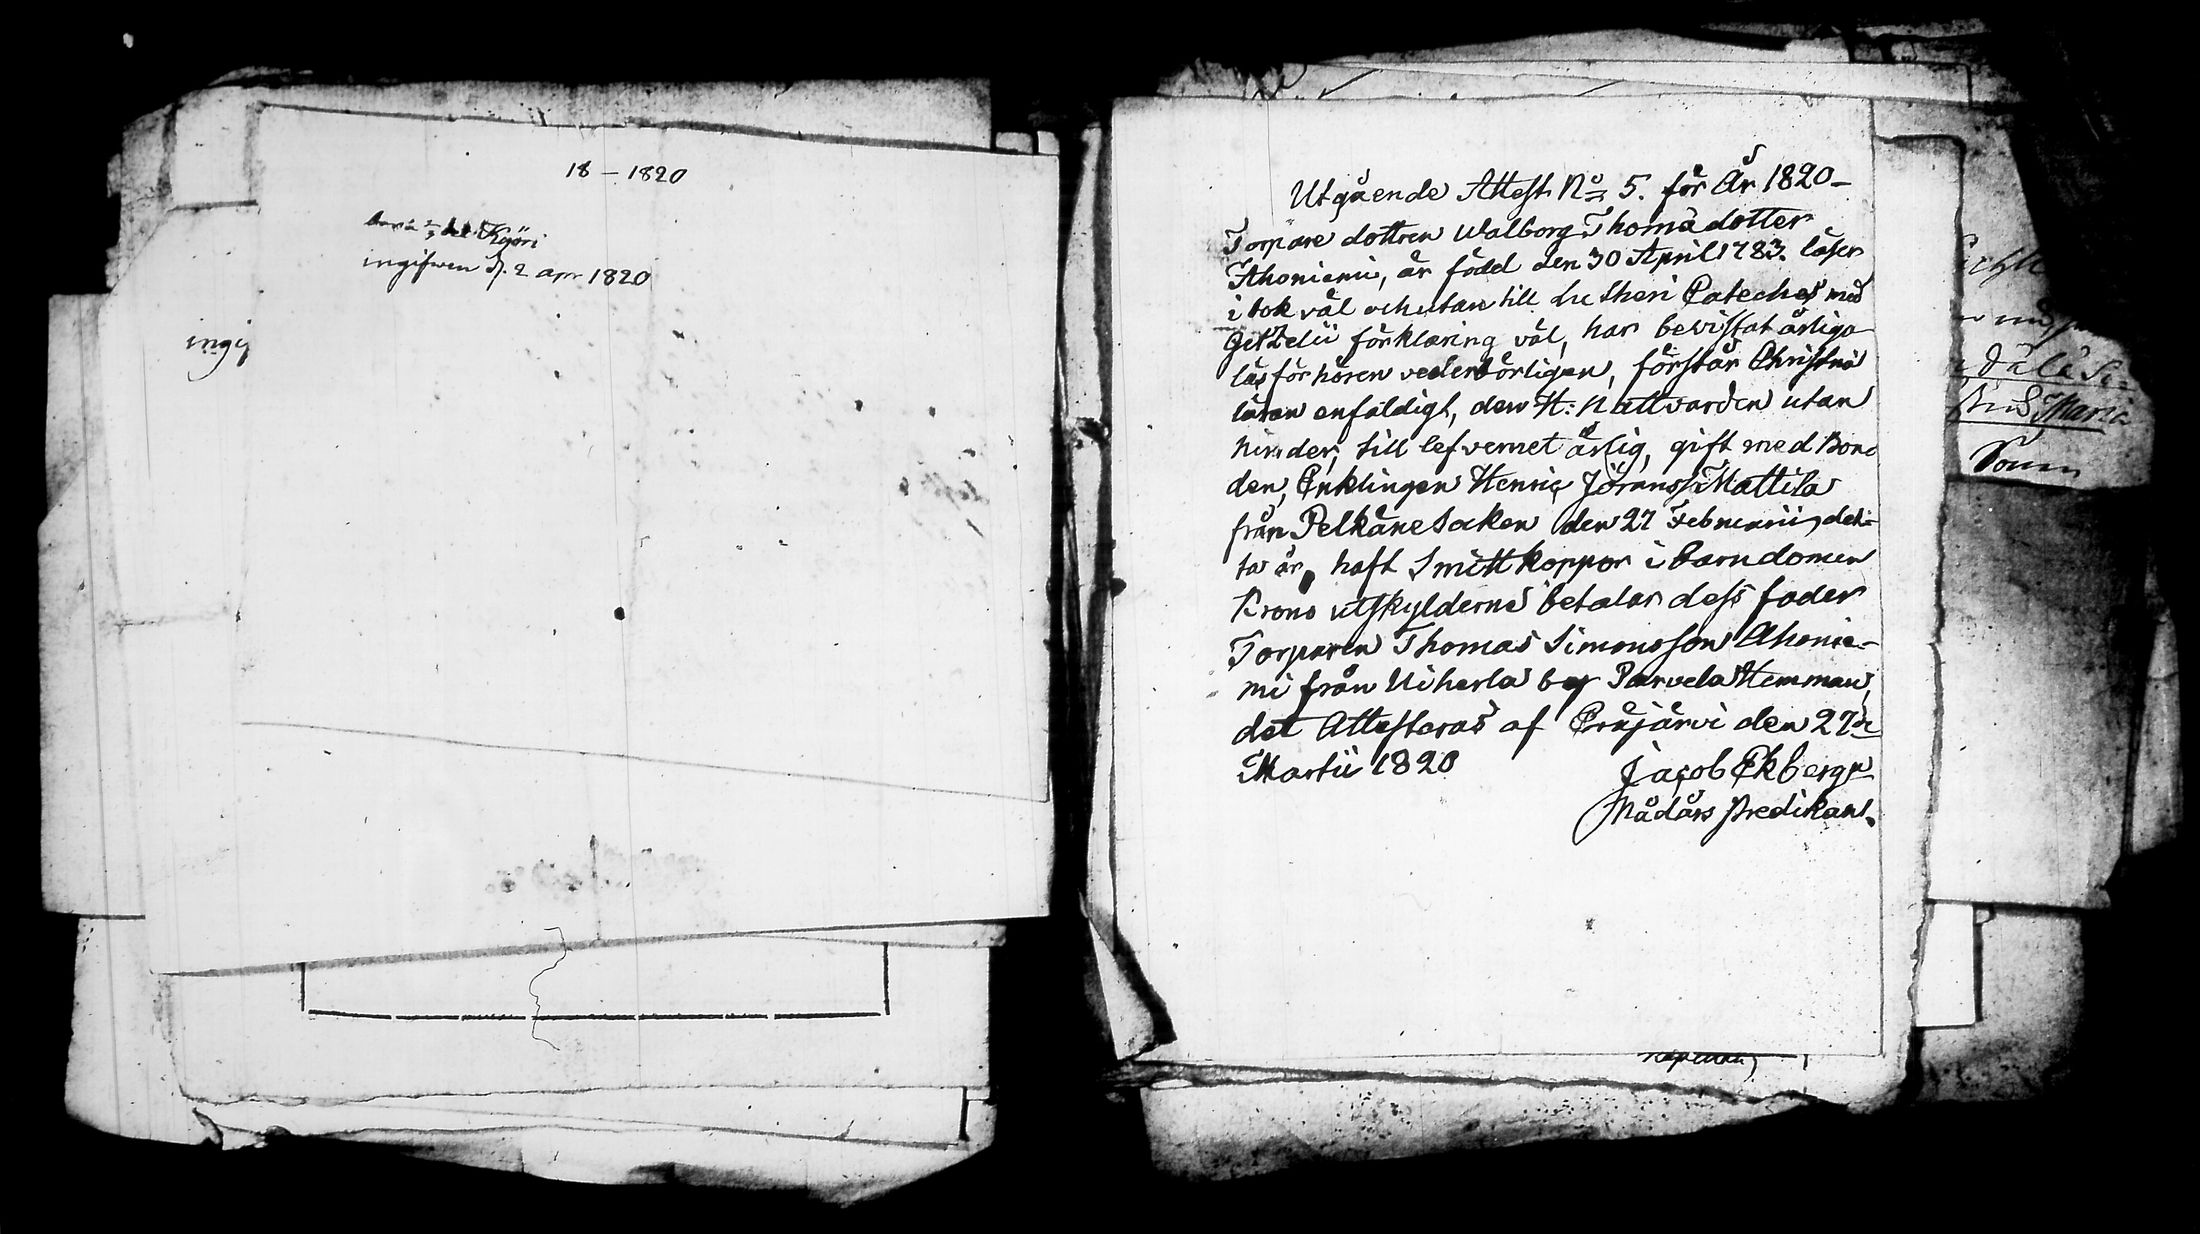 18 – 1820
Kyöri
ingifwen d. 2 apr 1820
ingif
Utgående Attest No 5. för År 1820–
Torpare dottren Walborg Thomä dotter
Ahoniemi, är född den 30 April 1783. läser
i bok väl och utan till Lutheri Cateches med
Getzelii förklaring väl, har bevistat årliga
läsförhören vederbörligen, förstår Christna
läran enfaldigt, den H: Nattvarden utan
hinder, till lefvernet ärlig, gift med Bon=
den, Enklingen Henric Jöransson Mattila
från Pelkäne Socken den 27 Februarii, det=
ta år, haft Smittkoppor i barndomen
Krono utskylderne betalar dess fader
Torparen Thomas Simonsson Ahonie=
mi från Uiherla by Parvela Hemman,
det Attesteras af Eräjärvi den 27de
Martii 1820
Jacob Ekbergn
Nådårs Predikant.
Maria